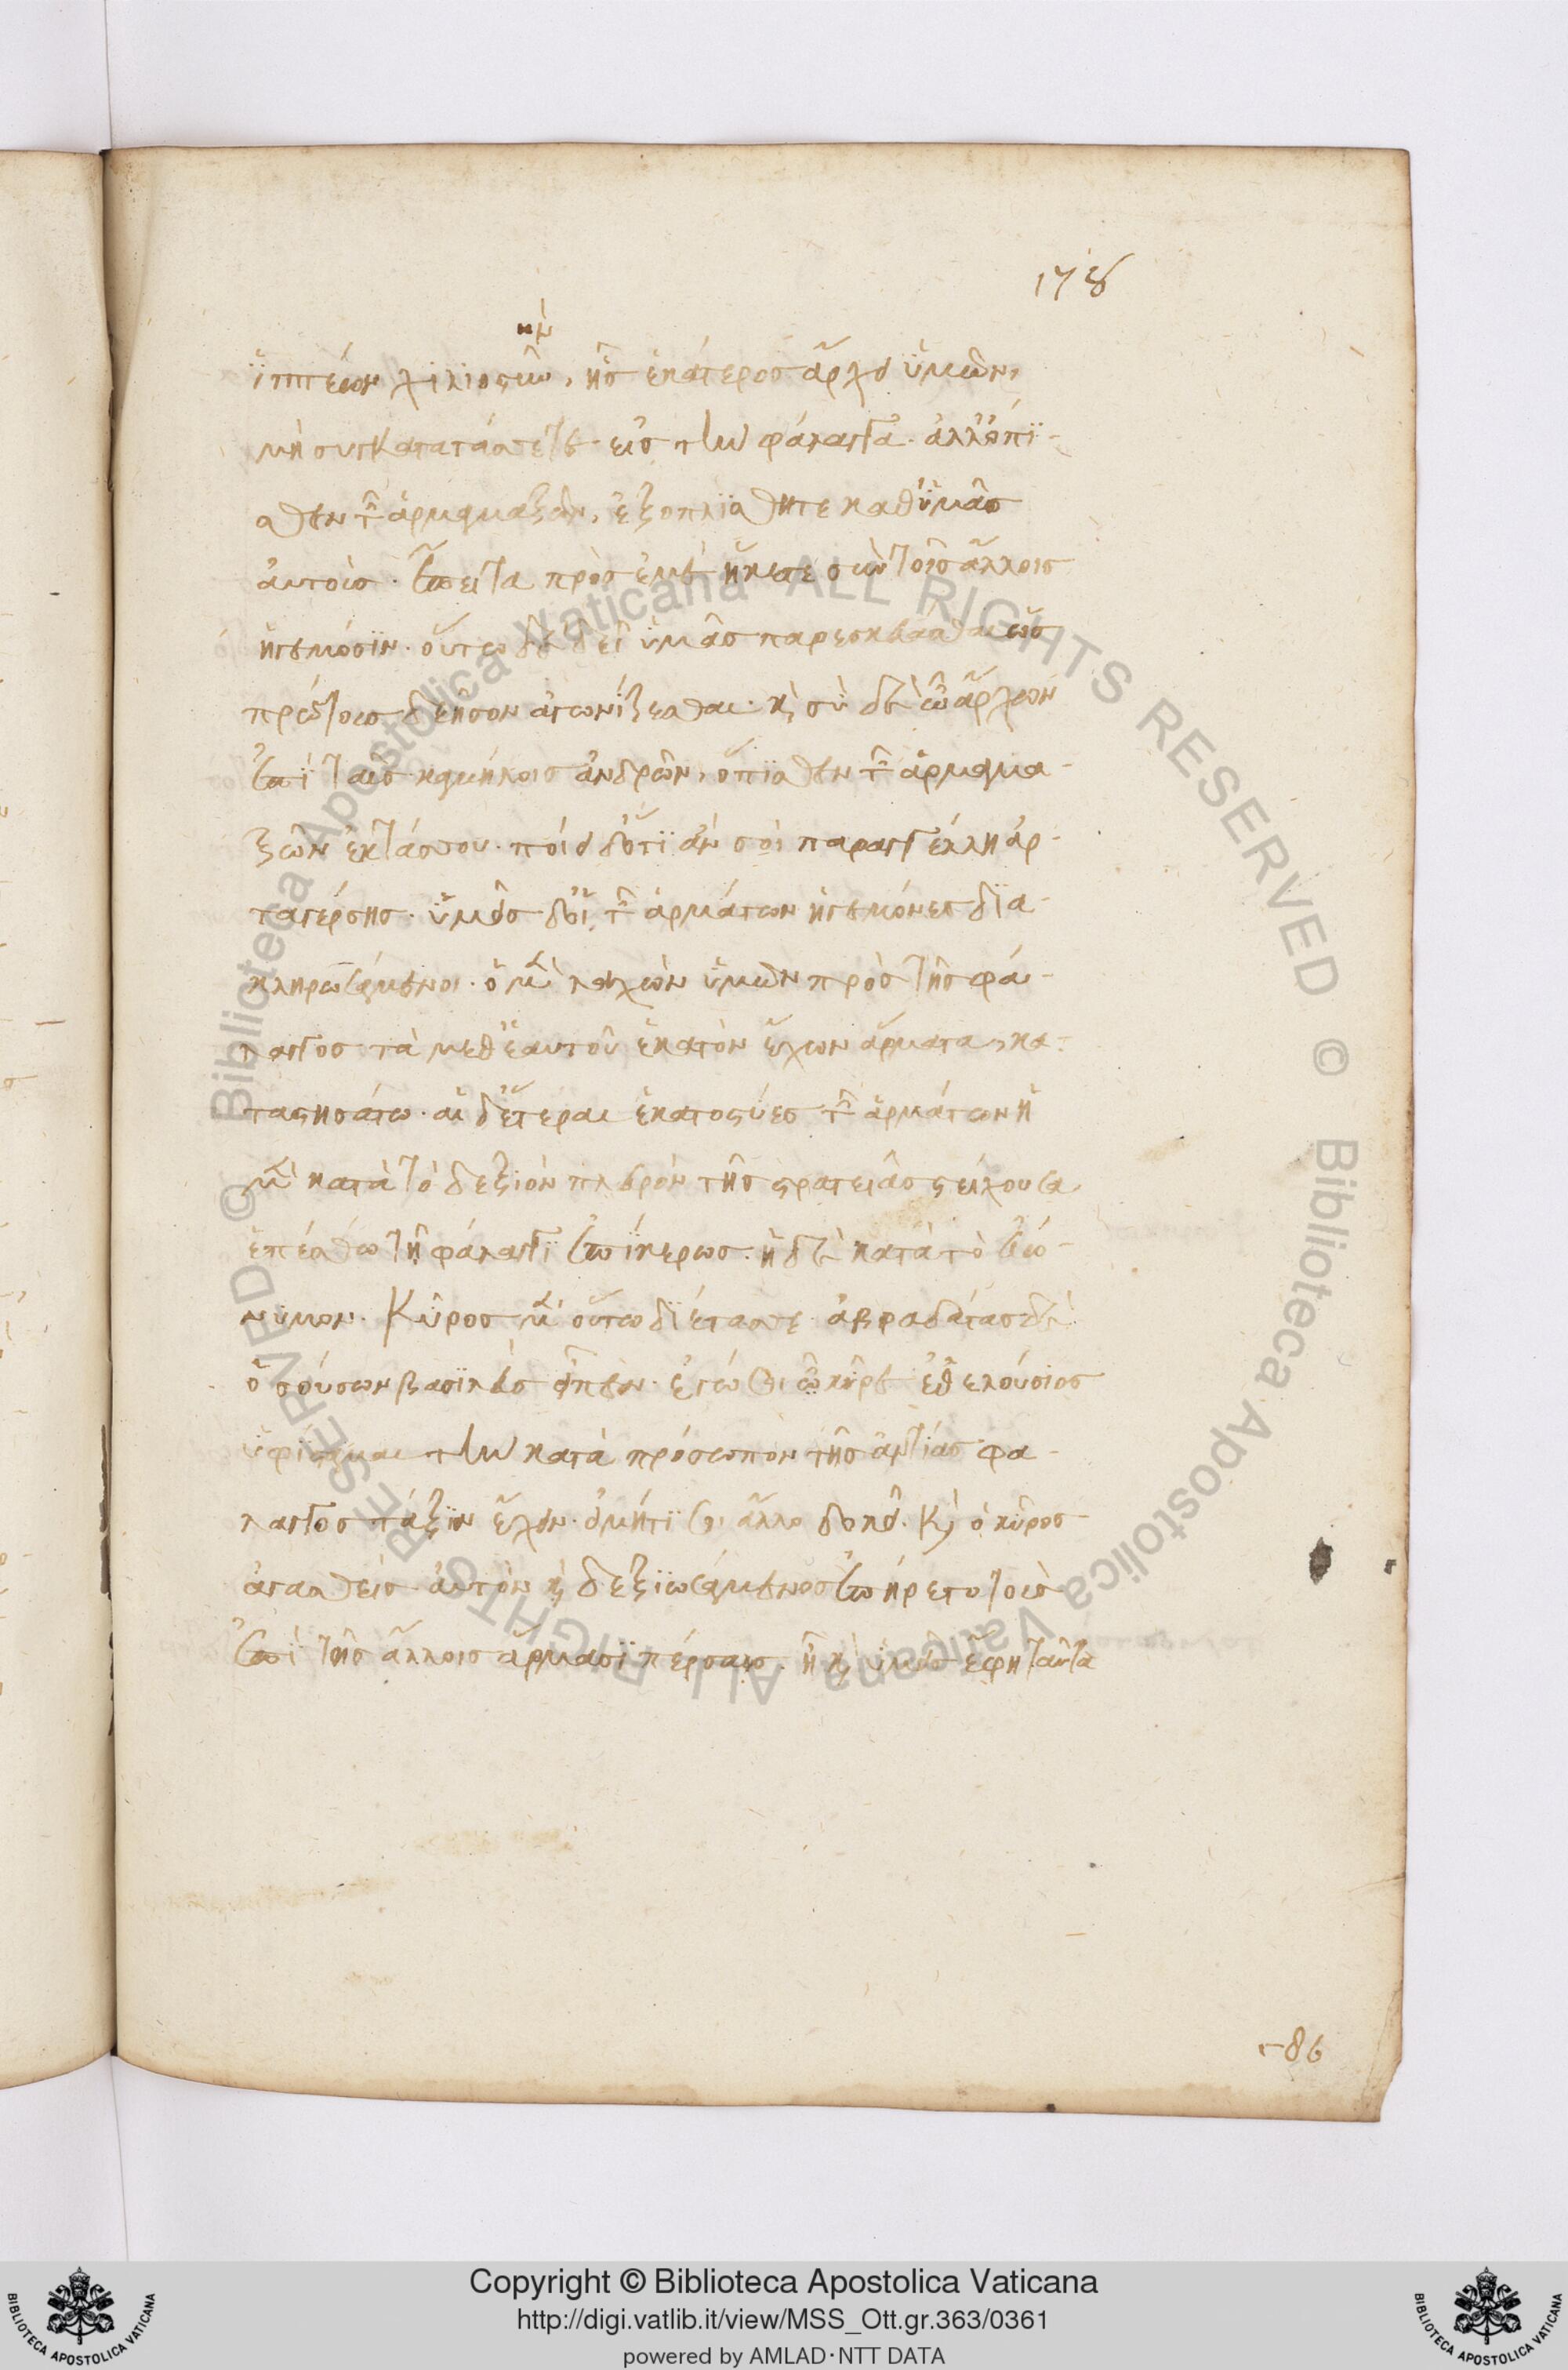 178
ἱππέων χιλιοστὺν, ἧς ἑκάτερος ἄρχει ὑμῶν,
μὴ συγκατατάττετε εἰς τὴν φάλαγγα. ἀλλ' ὄπι-
σθεν τῶν ἁρμαμαξῶν, ἐξοπλίσθητε καθ' ὑμᾶς
αὐτούς. ἔπειτα πρὸς ἐμὲ ἥκετε σὺν τοῖς ἄλλοις
ἡγεμόσιν. οὕτω δὲ δεῖ ὑμᾶς παρεσκευάσθαι ὡς
πρώτοις δεῆσον ἀγωνίζεσθαι. καὶ σὺ δὲ ὁ ἄρχων
ἐπὶ ταῖς καμήλοις ἀνδρῶν, ὄπισθεν τῶν ἁρμαμα-
ξῶν ἐκτάττου. ποίει δ' ὅτι ἄν σοι παραγγέλλῃ ἀρ-
ταγέρσης. ὑμεῖς δ' οἱ τῶν ἁρμάτων ἡγεμόνες δια-
κληρωσάμενοι. ὁ μὲν λαχὼν ὑμῶν πρὸς τῆς φά-
λαγγος τὰ μεθ' ἑαυτοῦ ἑκατὸν ἔχων ἅρματα, κα-
ταστησάτω. αἱ δ' ἕτεραι ἑκατοστύες τῶν ἁρμάτων ἡ
μὲν κατὰ τὸ δεξιὸν πλευρὸν τῆς στρατειᾶς στείχουσα
ἑπέσθω τῇ φάλαγγι ἐπὶ κέρως. ἡ δὲ κατὰ τὸ εὐώ-
νυμον. Κῦρος μὲν οὕτω διέταττε. ἀβραδάτας δὲ
ὁ σούσων βασιλεὺς εἶπεν. ἐγώ σοι ὦ κῦρε ἐθελούσιος
ὑφίσταμαι τὴν κατὰ πρόσωπον τῆς ἀντίας φα-
λαγγος τάξιν ἔχειν. εἰ μήτι σοι ἄλλο δοκεῖ. Καὶ ὁ κῦρος
ἀγασθεὶς αὐτὸν καὶ δεξιωσάμενος ἐπήρετο τοὺς
ἐπὶ τοῖς ἄλλοις ἅρμασι πέρσαις. ἦ καὶ ὑμεῖς ἔφη ταῦτα
Copyright © Biblioteca Apostolica Vaticana
http://digi.vatlib.it/view/MSS_Ott.gr.363/0361
powered by AMLAD·NTT DATA